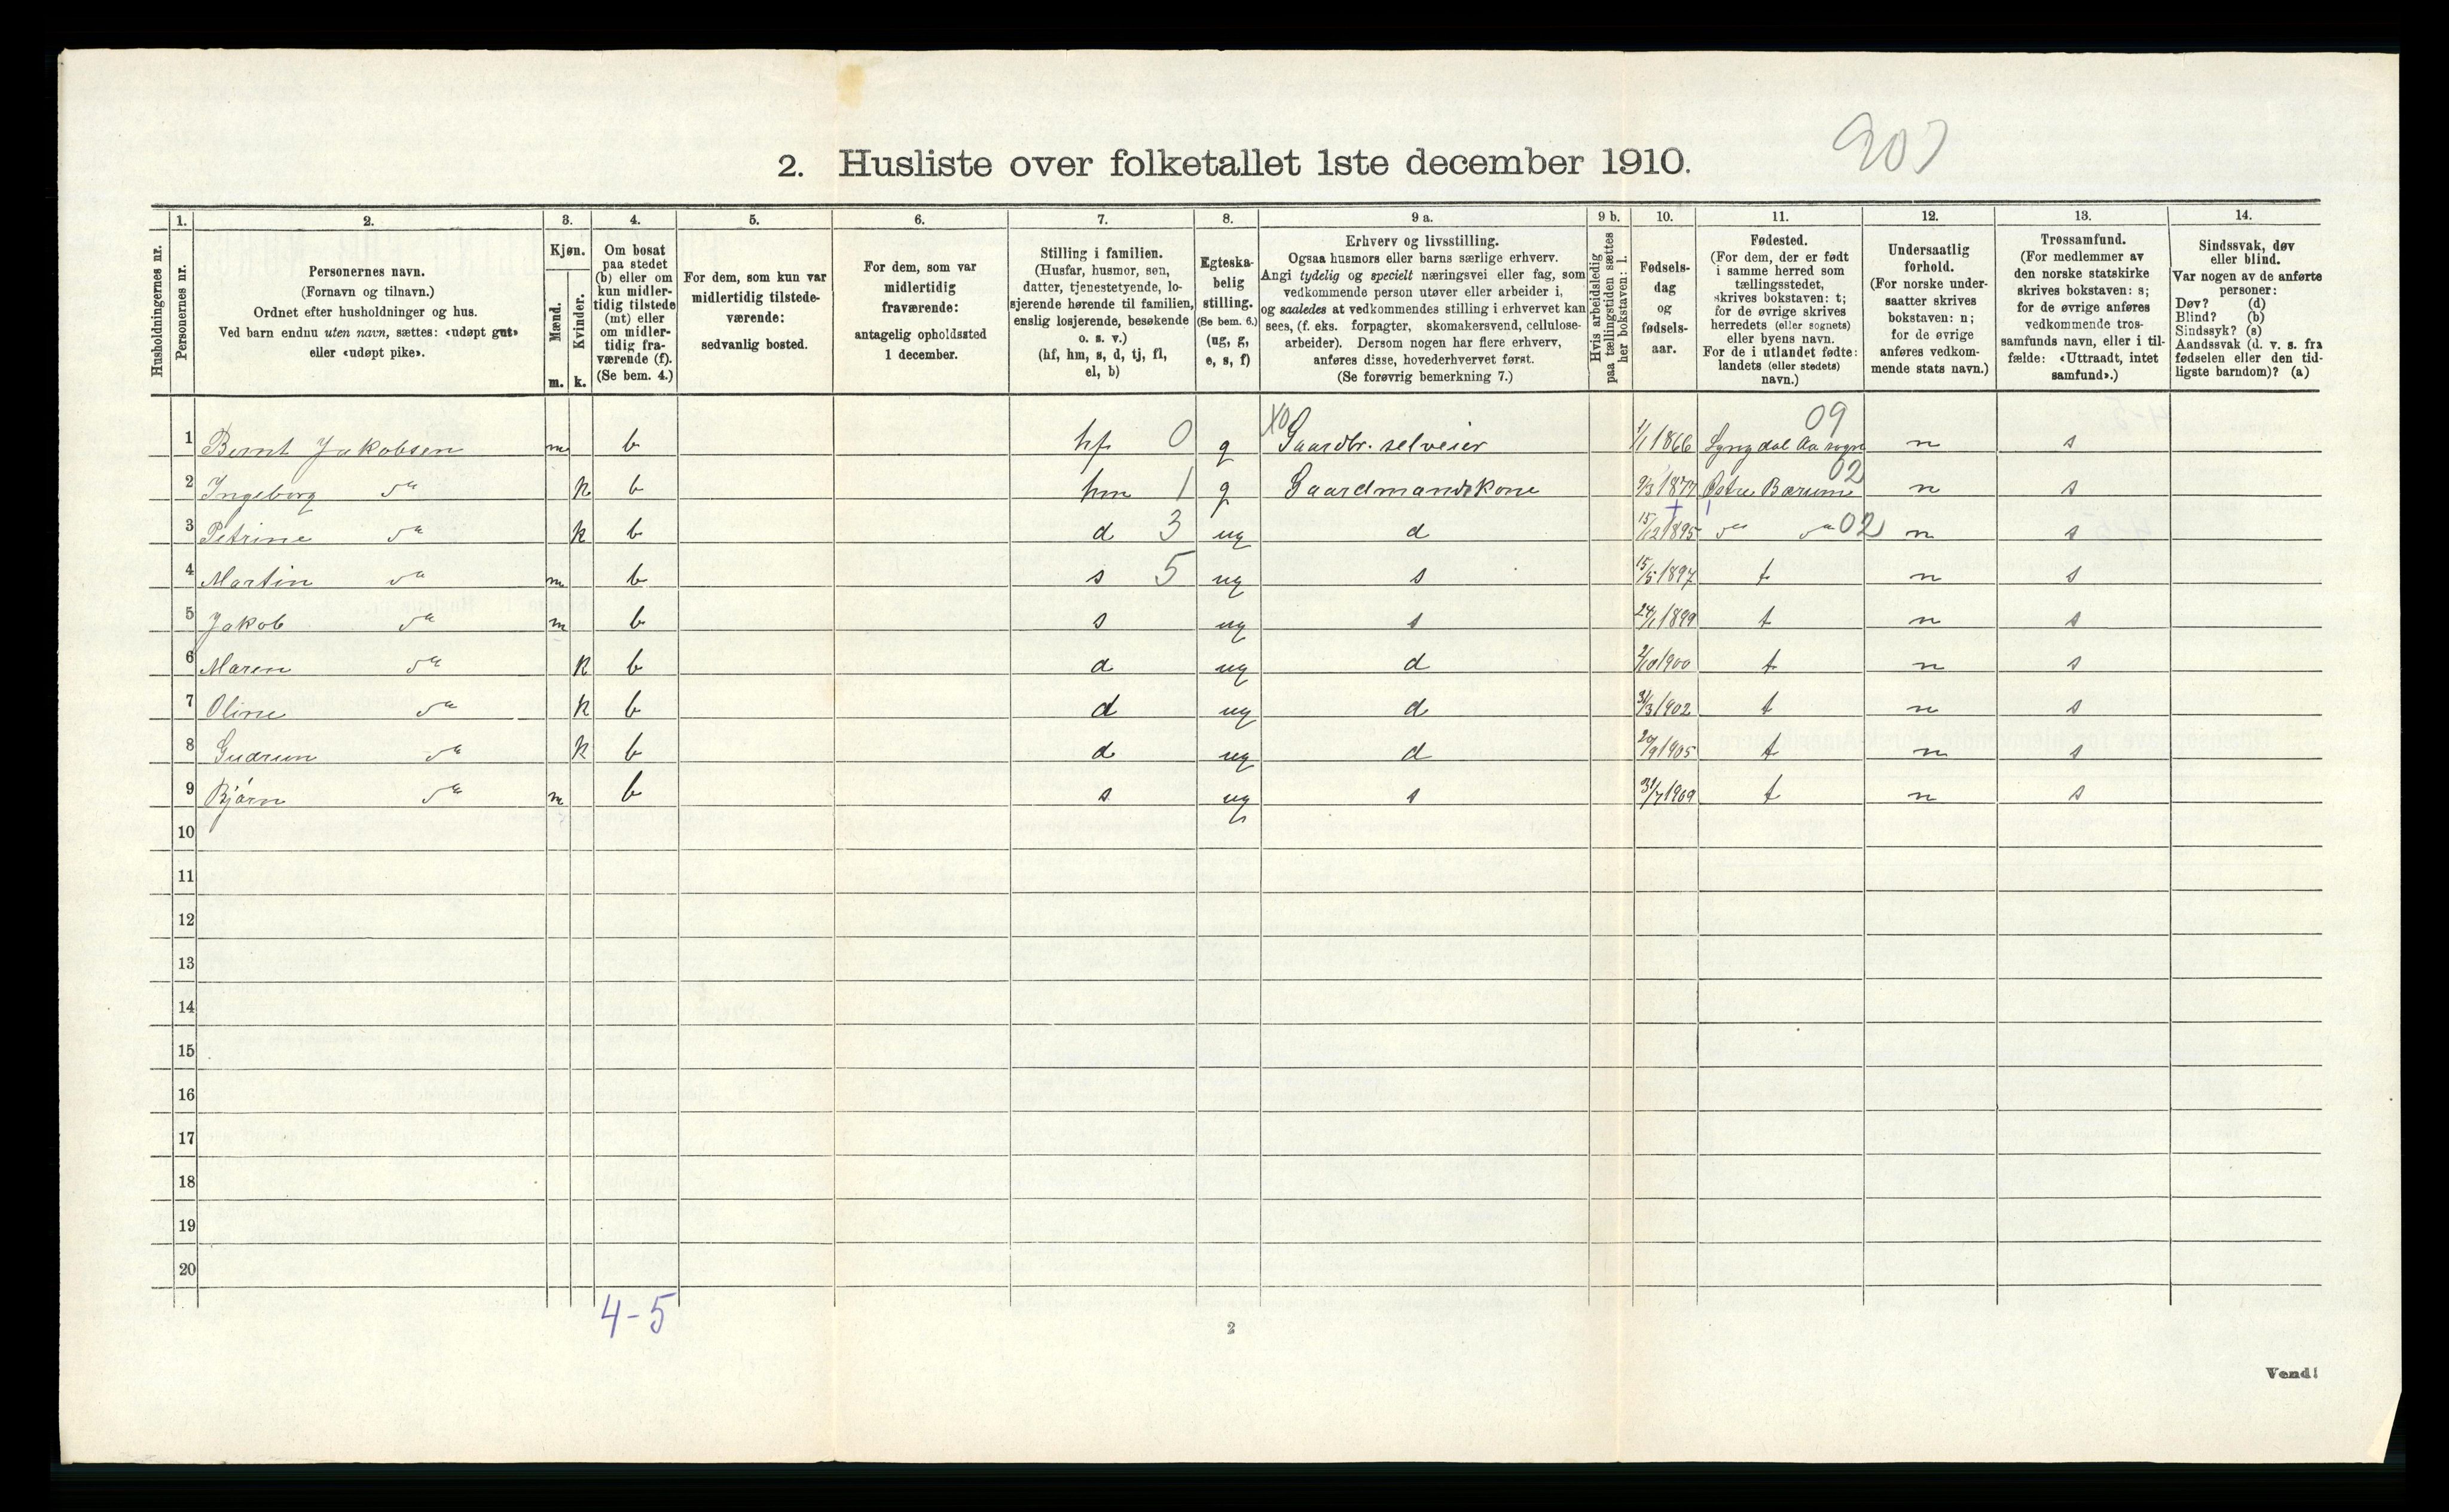 907
2. Husliste over folketallet 1ste december 1910.
Husholdningernes nr.
1. Personernes nr.
2. Personernes navn.
(Fornavn og tilnavn.)
Ordnet efter husholdninger og hus.
Ved barn endnu uten navn, sættes: «udøpt gut»
eller «udøpt pike».
3. Kjøn.
Mænd. m.
Kvinder. k.
4. Om bosat
paa stedet
(b) eller om
kun midler-
tidig tilstede
(mt) eller
om midler-
tidig fra-
værende (f).
(Se bem. 4.)
5. For dem, som kun var
midlertidig tilstede-
værende:
sedvanlig bosted.
6. For dem, som var
midlertidig
fraværende:
antagelig opholdssted
1 december.
7. Stilling i familien.
(Husfar, husmor, søn,
datter, tjenestetyende, lo-
sjerende hørende til familien,
enslig losjerende, besøkende
o. s. v.)
(hf, hm, s, d, tj, fl,
el, b)
8. Egteska-
belig
stilling.
(Se bem. 6.)
(ug, g,
e, s, f)
9 a. Erhverv og livsstilling.
Ogsaa husmors eller barns særlige erhverv.
Angi tydelig og specielt næringsvei eller fag, som
vedkommende person utøver eller arbeider i,
og saaledes at vedkommendes stilling i erhvervet kan
sees, (f. eks. forpagter, skomakersvend, cellulose-
arbeider). Dersom nogen har flere erhverv,
anføres disse, hovederhvervet først.
(Se forøvrig bemerkning 7.)
9 b. Hvis arbeidsledig
paa tællingstiden sættes
her bokstaven: l.
10. Fødsels-
dag
og
fødsels-
aar.
11. Fødested.
(For dem, der er født
i samme herred som
tællingsstedet,
skrives bokstaven: t;
for de øvrige skrives
herredets (eller sognets)
eller byens navn.
For de i utlandet fødte:
landets (eller stedets)
navn.)
12. Undersaatlig
forhold.
(For norske under-
saatter skrives
bokstaven: n;
for de øvrige
anføres vedkom-
mende stats navn.)
13. Trossamfund.
(For medlemmer av
den norske statskirke
skrives bokstaven: s;
for de øvrige anføres
vedkommende tros-
samfunds navn, eller i til-
fælde: «Uttraadt, intet
samfund».)
14. Sindssvak, døv
eller blind.
Var nogen av de anførte
personer:
Døv? (d)
Blind? (b)
Sindssyk? (s)
Aandssvak (d. v. s. fra
fødselen eller den tid-
ligste barndom)? (a)
1 Bernt Jakobsen m b hf 0 g X0 Gaardbr. selveier 1/1 1866 Lyngdal Aa sogn 09 n s
2 Ingeborg do k b hm 1 g Gaardmandskone 9/3 1877 Østre Bærum 02 n s
3 Petrine do k b d 3 ug d 15/12 1895 do do 02 n s
4 Martin do m b s 5 ug s 15/5 1897 t n s
5 Jakob do m b s ug s 24/1 1899 t n s
6 Maren do k b d ug d 2/10 1900 t n s
7 Oline do k b d ug d 31/3 1902 t n s
8 Gudrun do k b d ug d 29/9 1905 t n s
9 Bjørn do m b s ug s 31/7 1909 t n s
10
11
12
13
14
15
16
17
18
19
20
4-5
2
Vend!